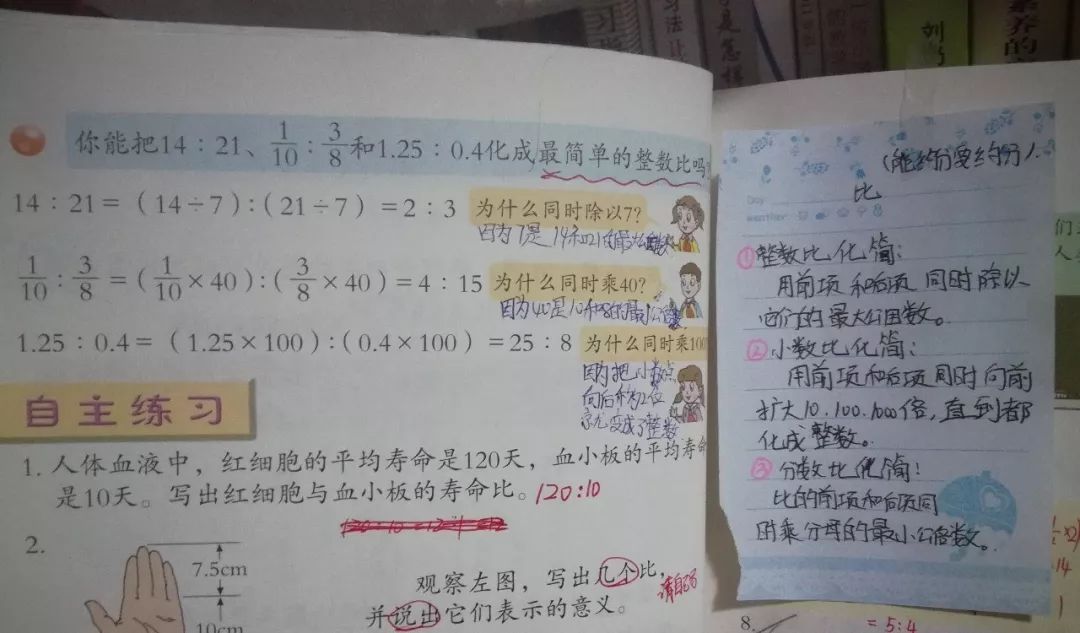 你能把14：21、1/10：3/8和1.25：0.4化成最简单的整数比吗
14：21＝（14÷7）：（21÷7）＝2：3
为什么同时除以7？
因为7是14和21的最大公因数
1/10：3/8＝（1/10×40）：（3/8×40）＝4：15
为什么同时乘40？
因为40是10和8的最小公倍数
1.25：0.4＝（1.25×100）：（0.4×100）＝25：8
为什么同时乘100
因为把小数点
向后移动2位
就变成了整数
自主练习
1. 人体血液中，红细胞的平均寿命是120天，血小板的平均寿命
是10天。写出红细胞与血小板的寿命比。120:10
2.
7.5cm
10cm
观察左图，写出几个比，
并说出它们表示的意义。
（能约分要约分）
比
Day
weather
①整数比化简：
用前项和后项同时除以
它们的最大公因数。
②小数比化简：
用前项和后项同时向前
扩大10.100.1000倍，直到都
化成整数。
③分数比化简！
比的前项和后项同
时乘分母的最小公倍数。
8.
＝5:4